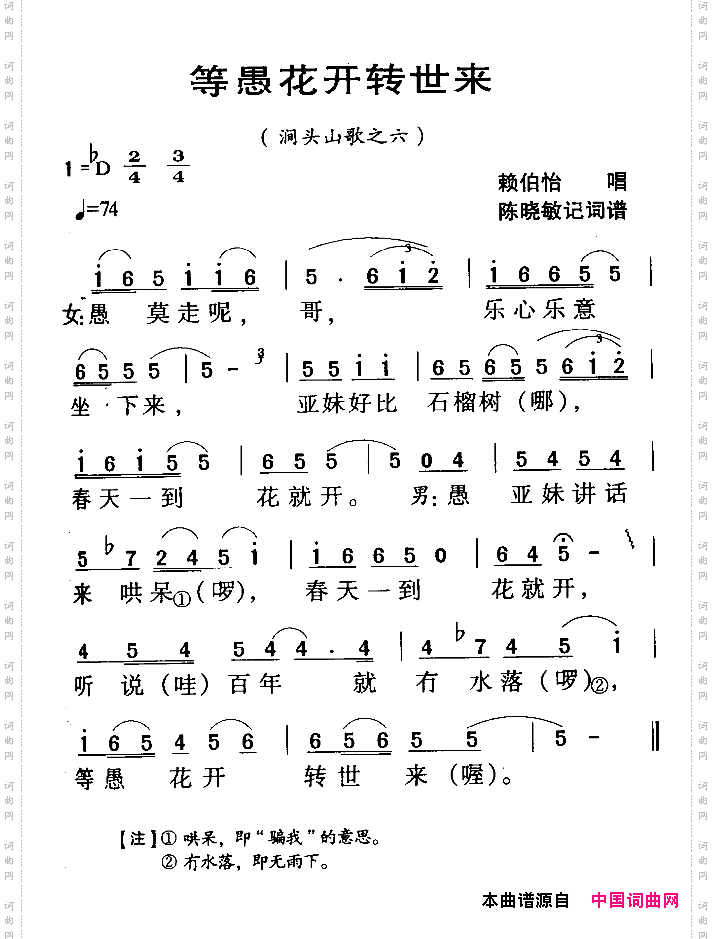 等愚花开转世来
（涧头山歌之六）
1=♭D 2/4 3/4
♩=74
赖伯怡 唱
陈晓敏记词谱
i 6 5 i i 6 | 5 · 6 i 2 | i 6 6 5 5
女:愚 莫走呢，哥， 乐心乐意
6 5 5 5 5 | 5 - 3 | 5 5 i i | 6 5 6 5 5 6 i 2 |
坐·下来， 亚妹好比 石榴树（哪），
i 6 i 5 5 | 6 5 5 | 5 0 4 | 5 4 5 4 |
春天一到 花就开。 男:愚 亚妹讲话
5 ♭7 2 4 5 i | i 6 6 5 0 | 6 4 5 -
来 哄呆①（啰）， 春天一到 花就开，
4 5 4 5 4 4 · 4 | 4 ♭7 4 5 i |
听说（哇）百年 就 冇 水落（啰）②，
i 6 5 4 5 6 | 6 5 6 5 5 | 5 - ‖
等愚 花开 转世 来（喔）。
【注】① 哄呆，即“骗我”的意思。
② 冇水落，即无雨下。
本曲谱源自 中国词曲网